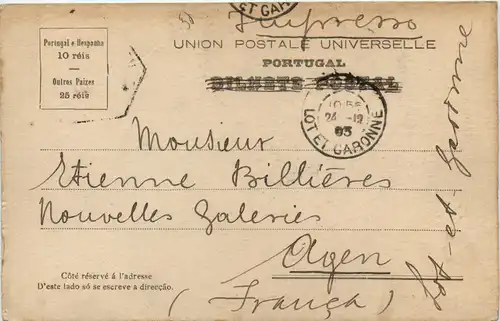 Impresso
ET GARONNE
UNION POSTALE UNIVERSELLE
PORTUGAL
BILHETE POSTAL
Portugal e Hespanha
10 réis
Outros Paizes
25 réis
24 -12
03
LOT ET GARONNE
Monsieur
Etienne Billières
Nouvelles Galeries
Agen
(França)
Côté réservé á l'adresse
D'este lado só se escreve a direcção.
Lot-et-Garonne